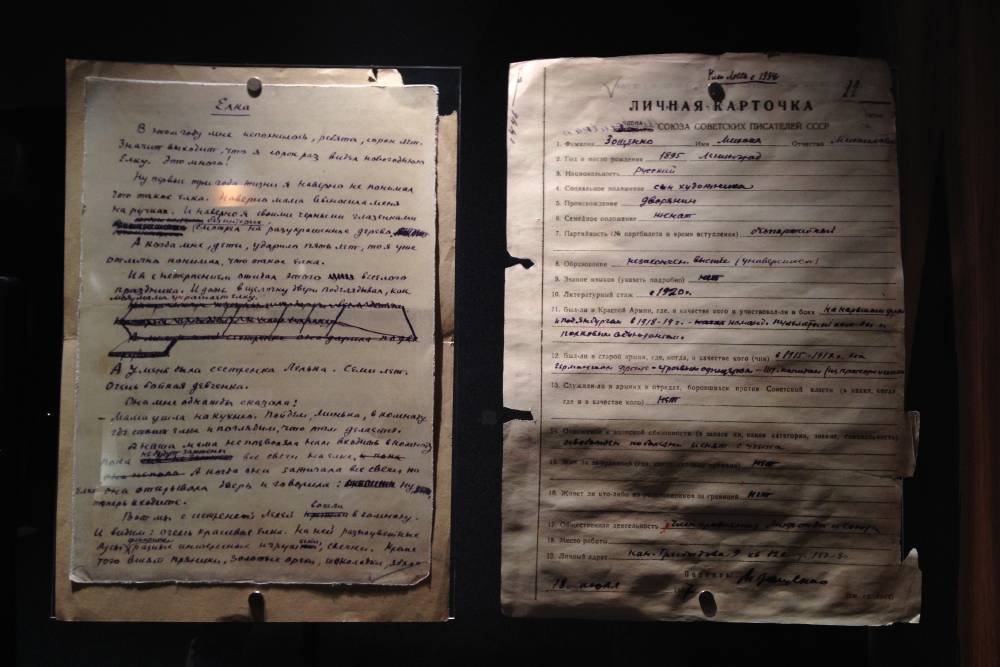 Елка
В этом году мне исполнилось, ребята, сорок лет.
Значит выходит, что я сорок раз видел новогоднюю
Елку. Это много!
Ну первые три года жизни я наверно не понимал
что такое елка. Наверно мама выносила меня
на ручках. И наверно я своими черными глазенками
без интереса
смотрел на разукрашенное дерево
А когда мне, дети, ударило пять лет, то я уже
отлично понимал, что такое елка.
И я с нетерпением ожидал этого веселого
праздника. И даже в щелочку двери подглядывал, как
моя мама украшает елку.
А у меня была сестренка Лелька. Семи лет.
Очень бойкая девченка.
Она мне однажды сказала:
– Мама ушла на кухню. Пойдем, Минька, в комнату
где стоит елка и поглядим, что там делается.
А наша мама не позволяла нам входить в комнату
пока не будут зажжены все свечи на елке
А когда она зажигала все свечи, то
она открывала дверь и говорила: ну
теперь входите.
Вот мы с сестренкой Лелей вошли в комнату.
И видим: очень красивая елка. На ней разноцветные
бусы, разные интересные игрушки, свечки. Кроме
того висят пряники, золотые орехи, шоколадки, яблоки
1954
ЛИЧНАЯ КАРТОЧКА
ЧЛЕНА СОЮЗА СОВЕТСКИХ ПИСАТЕЛЕЙ СССР
1. Фамилия Зощенко Имя Михаил Отчество Михайлович
2. Год и место рождения 1895 Ленинград
3. Национальность русский
4. Социальное положение сын художника
5. Происхождение дворянин
6. Семейное положение женат
7. Партийность (№ партбилета и время вступления) безпартийный
8. Образование незакончен. высшее (университет)
9. Знание языков (указать подробно) нет
10. Литературный стаж с 1920 г.
11. Был-ли в Красной Армии, где, в качестве кого и участвовал-ли в боях на нарвском
и под Ямбургом в 1918-19 г. – команд. пулеметной
полковым адъютантом.
12. Был-ли в старой армии, где, когда, в качестве кого (чин) в 1915-1917 г. на
германском фронте – строевым офицером – шт. капитан
13. Служили-ли в армиях и отрядах, боровшихся против Советской власти (в каких, когда
где и в качестве кого) нет
14. Отношение к воинской обязанности (в запасе ли, какая категория, звание, специальность)
освобожден по болезни и снят с учета
15. Жил ли за границей нет
16. Живет ли кто-либо из родственников за границей нет
17. Общественная деятельность член правления Литфонда
18. Место работы
19. Личный адрес кан. Грибоедова 9 кв
18. июля
Подпись М. Зощенко